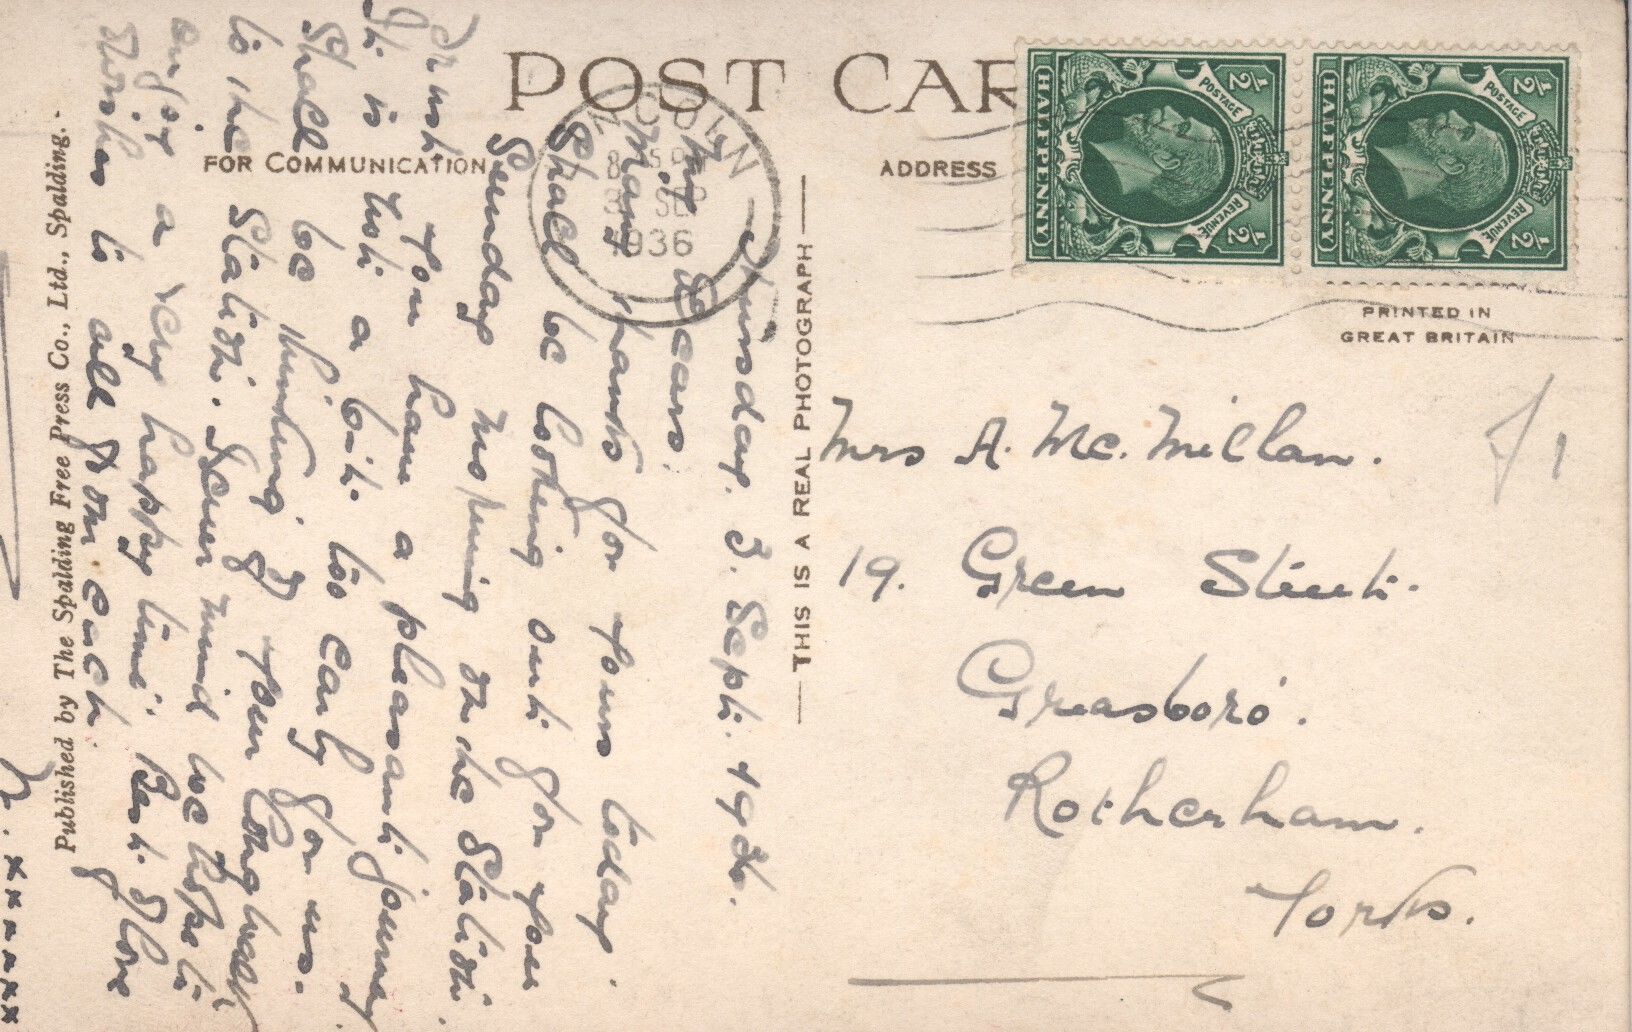 POST CAR
FOR COMMUNICATION
ADDRESS
LINCOLN
8
SEP
1936
POSTAGE
REVENUE
HALFPENNY
½
½
POSTAGE
REVENUE
HALFPENNY
½
½
PRINTED IN
GREAT BRITAIN
THIS IS A REAL PHOTOGRAPH
Published by The Spalding Free Press Co., Ltd., Spalding.
Thursday. 3. Sept. 1936.
My Dears.
Many thanks for yours today.
Shall be looking out for you
Sunday morning on the Station
I wish you have a pleasant journey.
It is not a bit too early for us.
Shall be thinking of your long walk
to the Station. Never mind we hope to
enjoy a very happy time. Best of love
wishes to all from each.
x x x x x x
Mrs A. Mc.Millan.
19. Green Street.
Greasboro'.
Rotherham.
Yorks.